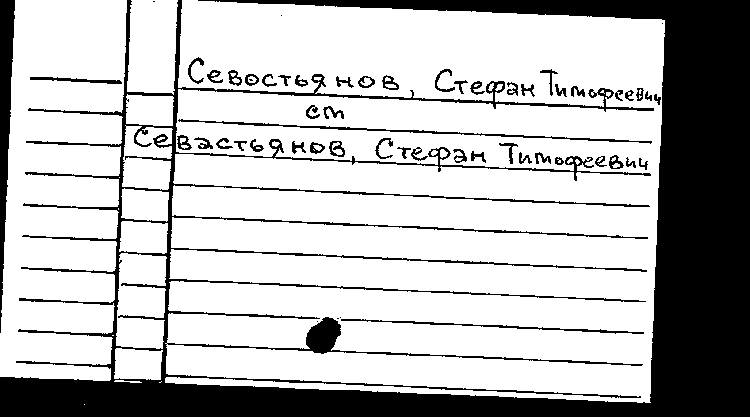 Севостьянов, Стефан Тимофеевич
ст
Севастьянов, Стефан Тимофеевич